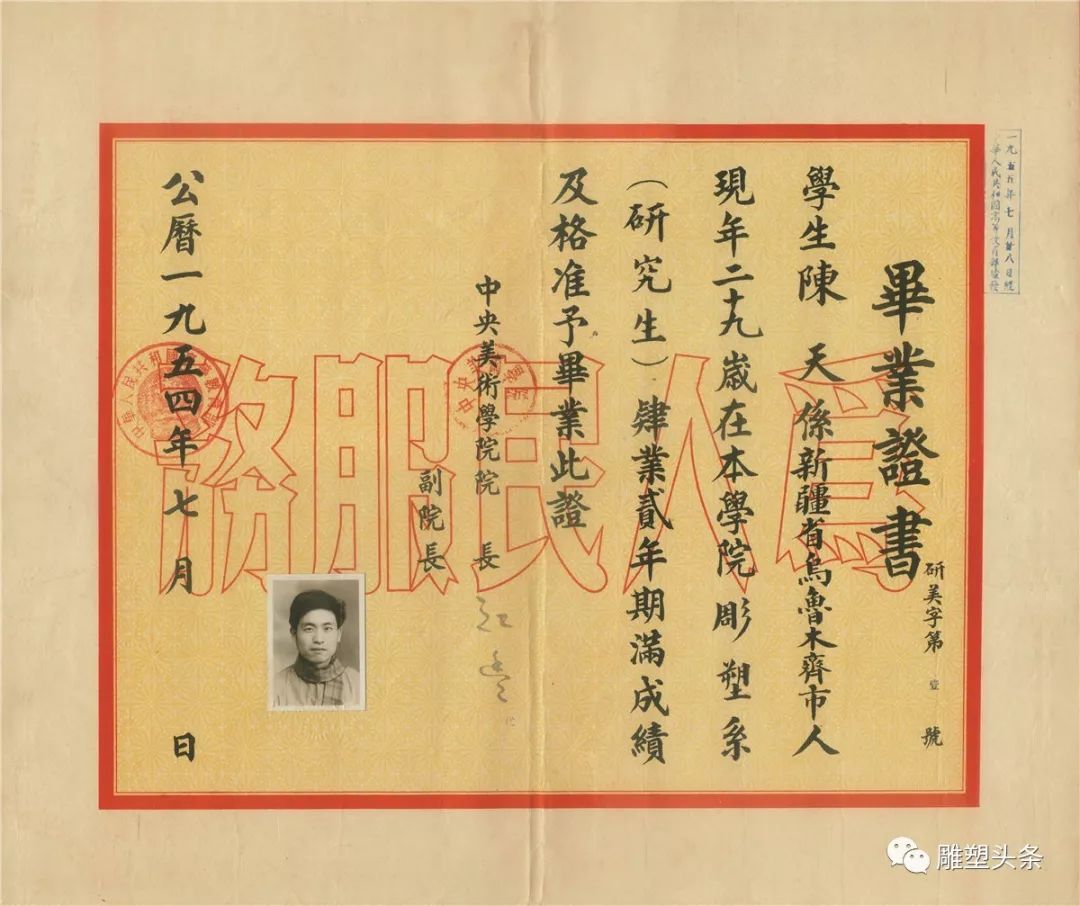 畢業證書
研美字第壹號
學生陳 天 係新疆省烏魯木齊市人
現年二十九歲在本學院彫塑系
（研究生）肄業貳年期滿成績
及格准予畢業此證
中央美術學院院 長 江豐
副院長
公曆一九五四年七月 日
為人民服務
一九五五年七月廿八日經
雕塑头条